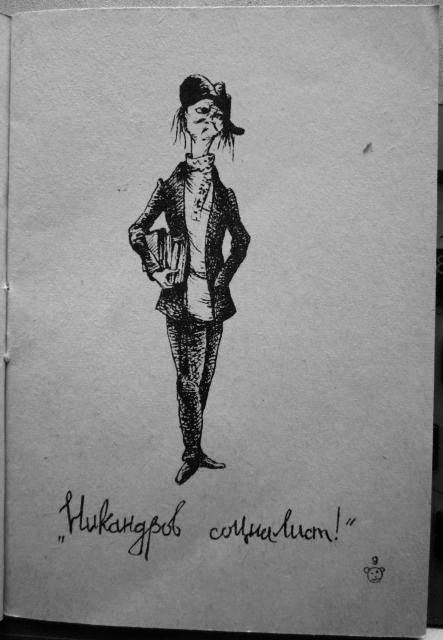 „Никандров социалист!“
9